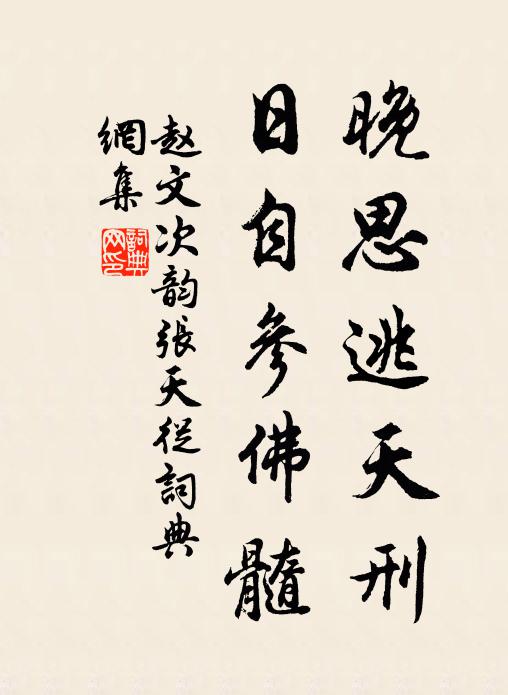 晚思逃天刑
日自參佛髓
赵文次韵張天從詞典
網集
詞典網印